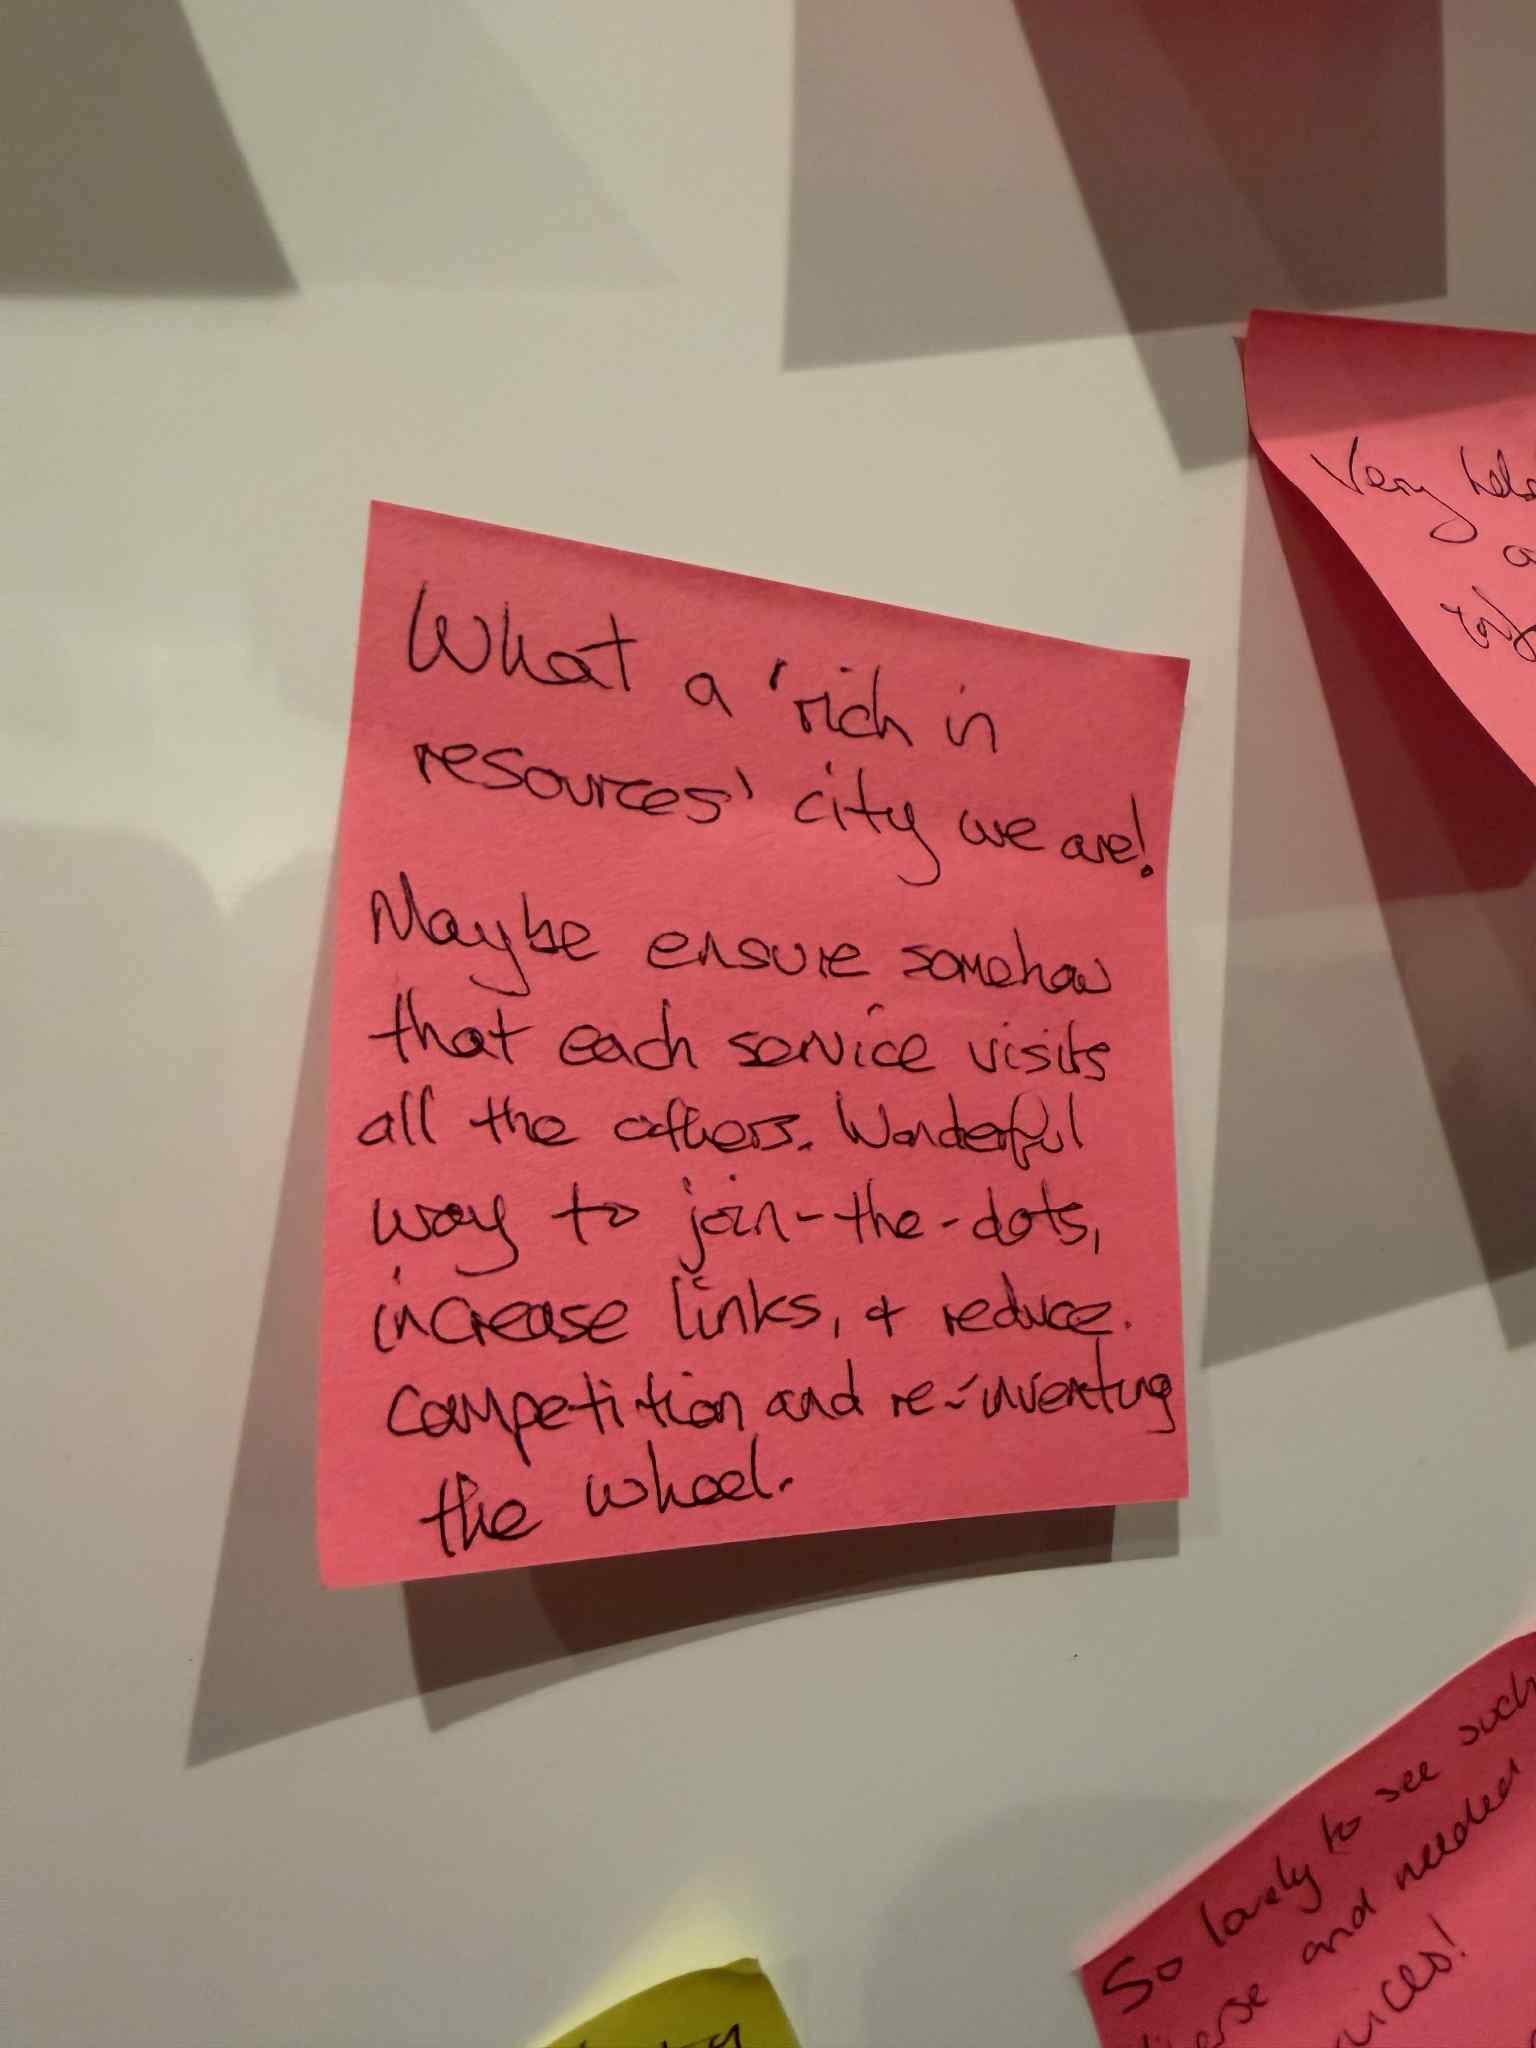 What a 'rich in
resources' city we are!
Maybe ensure somehow
that each service visits
all the others. Wonderful
way to join-the-dots,
increase links, + reduce.
competition and re-inventing
the wheel.
Very
So lovely to see such
and needed